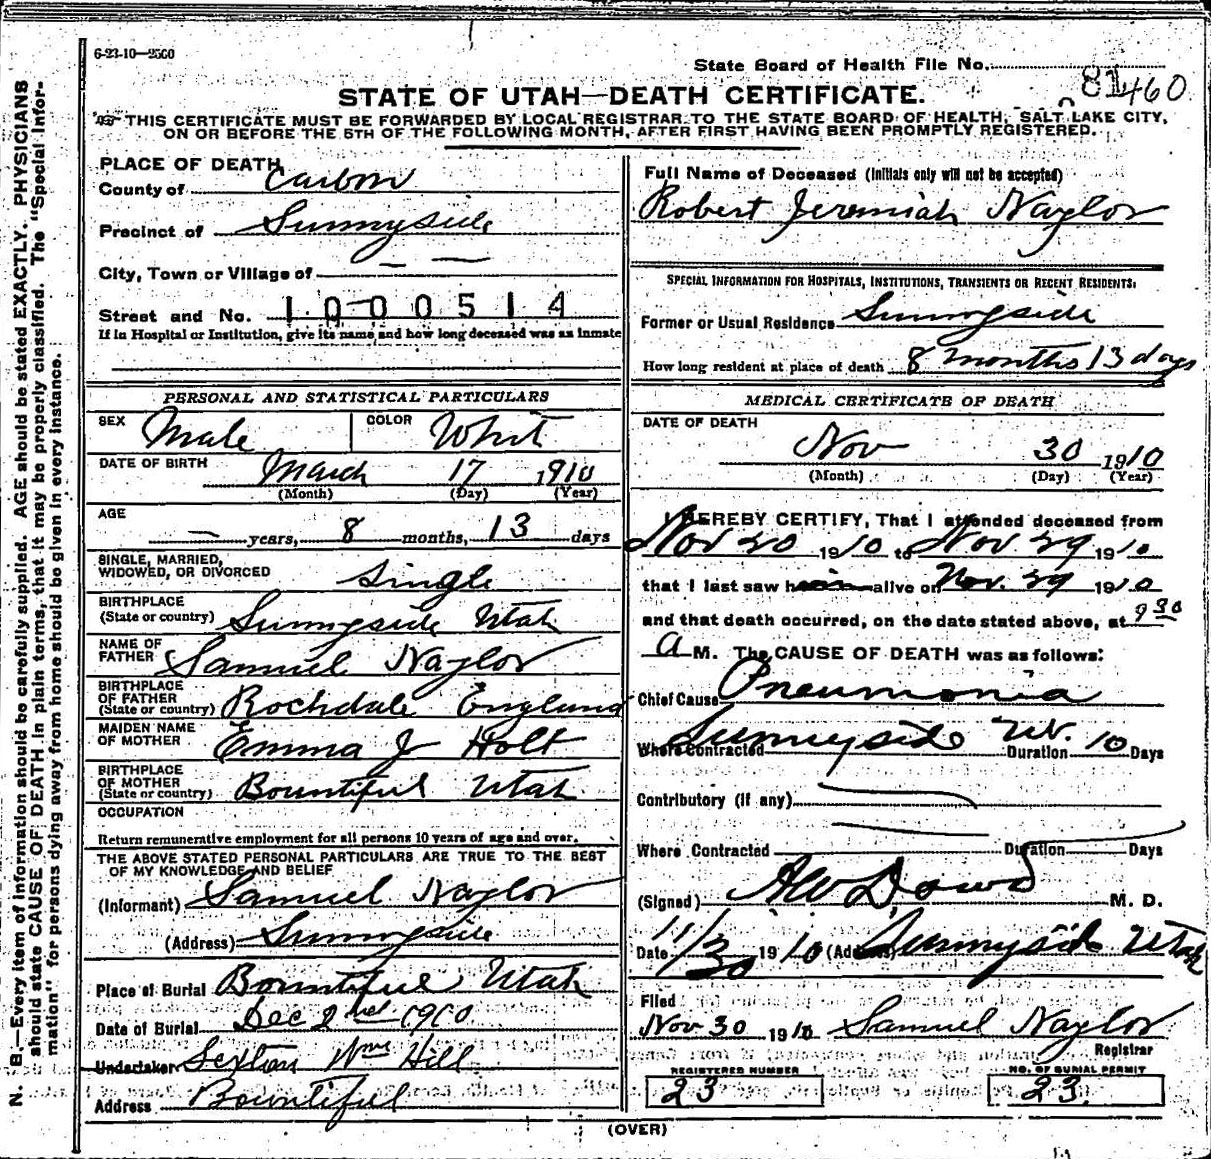 6-23-10—2500
State Board of Health File No. 81 460
STATE OF UTAH—DEATH CERTIFICATE.
THIS CERTIFICATE MUST BE FORWARDED BY LOCAL REGISTRAR TO THE STATE BOARD OF HEALTH, SALT LAKE CITY,
ON OR BEFORE THE 5TH OF THE FOLLOWING MONTH, AFTER FIRST HAVING BEEN PROMPTLY REGISTERED.
N. B.—Every item of information should be carefully supplied. AGE should be stated EXACTLY. PHYSICIANS
should state CAUSE OF DEATH in plain terms, that it may be properly classified. The "Special Infor-
mation" for persons dying away from home should be given in every instance.
PLACE OF DEATH
County of Carbon
Precinct of Sunnyside
City, Town or Village of — —
Street and No. 1000514
If in Hospital or Institution, give its name, and how long deceased was as inmate
PERSONAL AND STATISTICAL PARTICULARS
SEX Male COLOR Whit
DATE OF BIRTH March 17 1910
(Month) (Day) (Year)
AGE
— years, 8 months, 13 days
SINGLE, MARRIED,
WIDOWED, OR DIVORCED Single
BIRTHPLACE
(State or country) Sunnyside Utah
NAME OF
FATHER Samuel Naylor
BIRTHPLACE
OF FATHER
(State or country) Rochdale England
MAIDEN NAME
OF MOTHER Emma J Holt
BIRTHPLACE
OF MOTHER
(State or country) Bountiful Utah
OCCUPATION
Return remunerative employment for all persons 10 years of age and over.
THE ABOVE STATED PERSONAL PARTICULARS ARE TRUE TO THE BEST
OF MY KNOWLEDGE AND BELIEF
(Informant) Samuel Naylor
(Address) Sunnyside
Place of Burial Bountiful Utah
Date of Burial Dec 2 1910
Undertaker Sexton Wm Hill
Address Bountiful
Full Name of Deceased (Initials only will not be accepted)
Robert Jeremiah Naylor
SPECIAL INFORMATION FOR HOSPITALS, INSTITUTIONS, TRANSIENTS OR RECENT RESIDENTS:
Former or Usual Residence Sunnyside
How long resident at place of death 8 months 13 days
MEDICAL CERTIFICATE OF DEATH
DATE OF DEATH
Nov 30 1910
(Month) (Day) (Year)
I HEREBY CERTIFY, That I attended deceased from
Nov 20 1910 to Nov 29 1910
that I last saw him alive on Nov. 29 1910
and that death occurred, on the date stated above, at 9 30
A M. The CAUSE OF DEATH was as follows:
Chief Cause Pneumonia
Where Contracted Sunnyside Ut. Duration 10 Days
Contributory (if any)
Where Contracted Duration Days
(Signed) AW Dowd M. D.
Date 11/30 1910 (Address) Sunnyside Utah
Filed
Nov 30 1910 Samuel Naylor
Registrar
REGISTERED NUMBER
23
NO. OF BURIAL PERMIT
23.
(OVER)